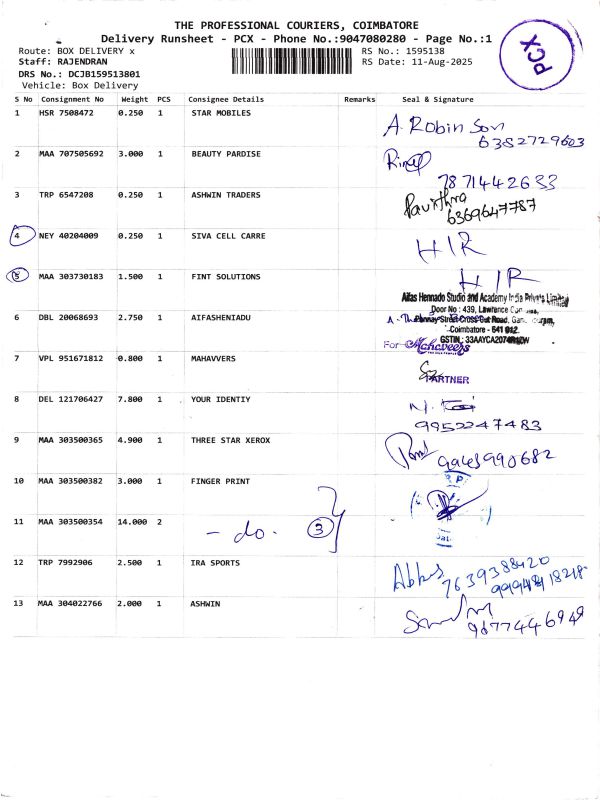 THE PROFESSIONAL COURIERS, COIMBATORE
Delivery Runsheet - PCX - Phone No.:9047080280 - Page No.:1
PCX
Route: BOX DELIVERY x
RS No.: 1595138
Staff: RAJENDRAN
RS Date: 11-Aug-2025
DRS No.: DCJB159513801
Vehicle: Box Delivery
S No Consignment No Weight PCS Consignee Details Remarks Seal & Signature
1 HSR 7508472 0.250 1 STAR MOBILES A. Robin Son
6382729603
2 MAA 707505692 3.000 1 BEAUTY PARDISE
7871442633
3 TRP 6547208 0.250 1 ASHWIN TRADERS Pavithra
6369647787
4 NEY 40204009 0.250 1 SIVA CELL CARRE H/R
5 MAA 303730183 1.500 1 FINT SOLUTIONS H/R
Aifas Hennado Studio and Academy India Private Limited
Door No : 439, Lawrence
6 DBL 20068693 2.750 1 AIFASHENIADU
Street Cross Cut Road,
Coimbatore - 641 012.
GSTIN : 33AAYCA2074R1ZW
For Mahaveers
7 VPL 951671812 0.800 1 MAHAVVERS
PARTNER
8 DEL 121706427 7.800 1 YOUR IDENTIY
9952247483
9 MAA 303500365 4.900 1 THREE STAR XEROX
9943990682
10 MAA 303500382 3.000 1 FINGER PRINT
11 MAA 303500354 14.000 2 - do. 3
12 TRP 7992906 2.500 1 IRA SPORTS Abbas
7639388420
13 MAA 304022766 2.000 1 ASHWIN
9677446949